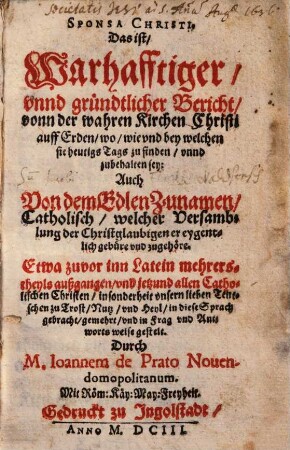 Societatis Jesu a S. Anna Aug. 1636
SPONSA CHRISTI,
Das ist/
Warhafftiger/
vnnd gründtlicher Bericht/
vonn der wahren Kirchen Christi
auff Erden/ wo/ wie vnd bey welchen
sie heutigs Tags zu finden/ vnnd
zubehalten sey:
Auch
Von dem Edlen Zunamen/
Catholisch/ welcher Versamb-
lung der Christglaubigen er eygent-
lich gebüre vnd zugehöre.
Etwa zuvor inn Latein mehrers-
theyls außgangen/ vnd jetzund allen Catho-
lischen Christen/ in sonderheit vnsern lieben Teut-
schen zu Trost/ Nutz/ vnd Heyl/ in diese Sprach
gebracht/ gemehrt/ vnd in Frag vnd Ant-
worts weise gestelt.
Durch
M. Ioannem de Prato Nouen-
domopolitanum.
Mit Röm: Käy: May: Freyheit.
Gedruckt zu Ingolstadt/
ANNO M. DCIII.